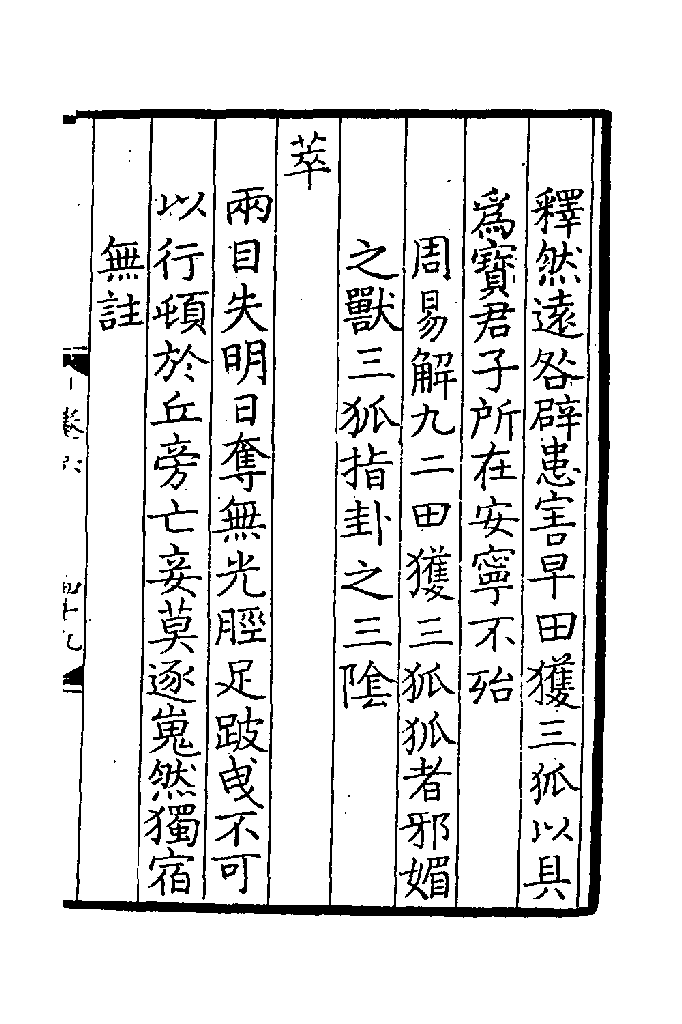 釋然遠咎辟患害早田獲三狐以具
為寶君子所在安寧不殆
周易解九二田獲三狐狐者邪媚
之獸三狐指卦之三陰
萃
兩目失明日奪無光脛足跛曳不可
以行頓於丘旁亡妾莫逐嵬然獨宿
無註
卷六
四十九